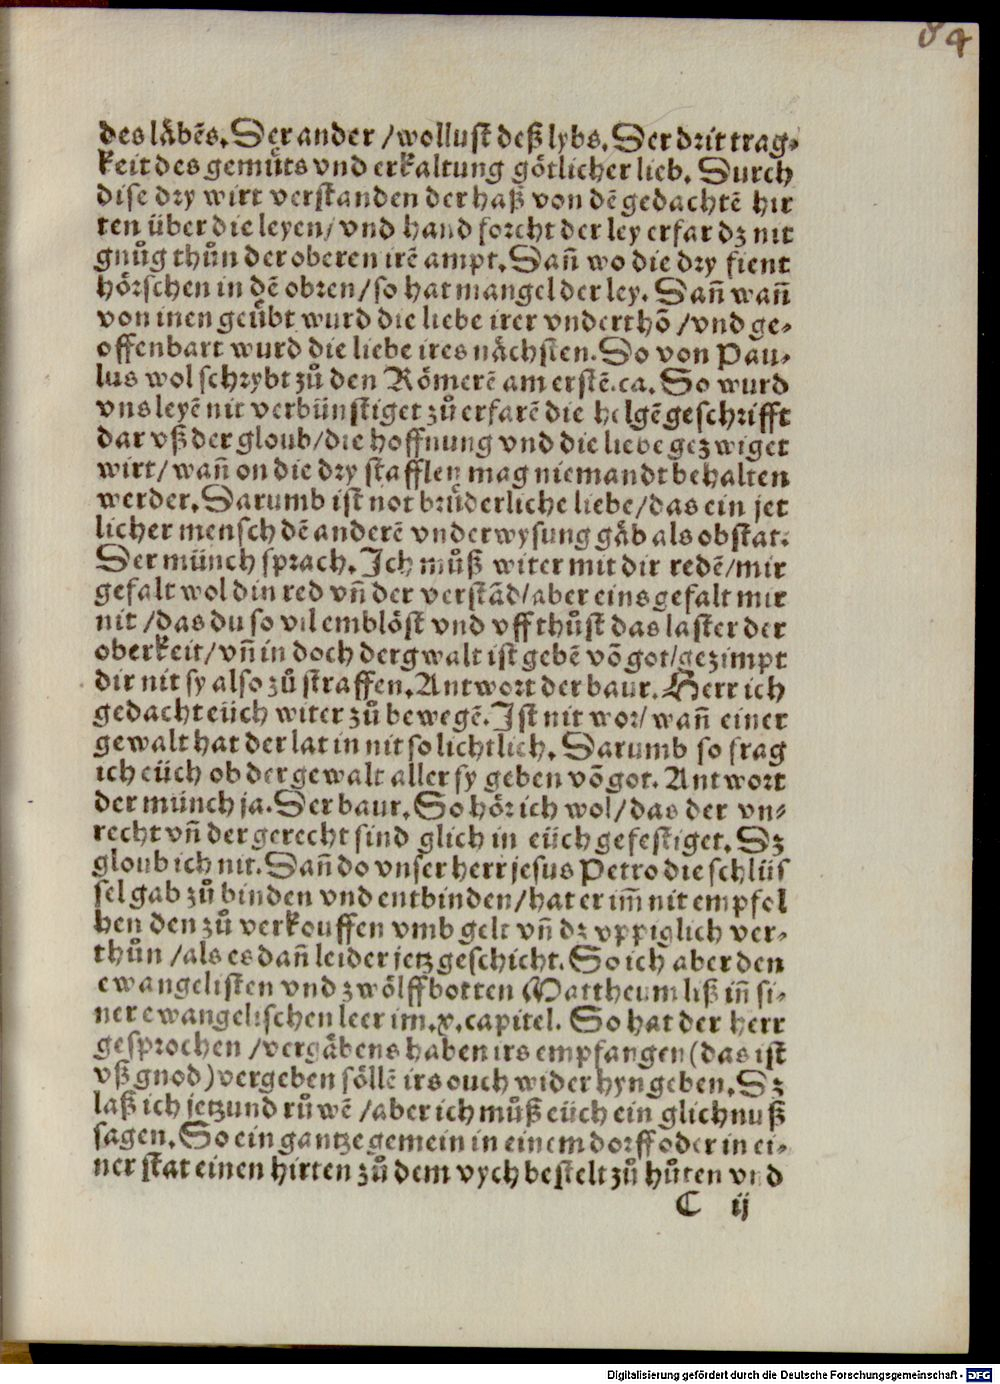 84
des läbēs. Der ander / wollust deß lybs. Der drit trag-
keit des gemůts vnd erkaltung götlicher lieb. Durch
dise dry wirt verstanden der haß von dē gedachtē hir
ten über die leyen / vnd hand forcht der ley erfar dz nit
gnůg thůn der oberen irē ampt. Dañ wo die dry fient
hörschen in dē obren / so hat mangel der ley. Dañ wañ
von inen geübt wurd die liebe irer vnderthō / vnd ge-
offenbart wurd die liebe ires nächsten. Do von Pau-
lus wol schrybt zů den Römerē am erstē. ca. So wurd
vns leyē nit verbünstiget zů erfarē die helgē geschrifft
dar vß der gloub / die hoffnung vnd die liebe gezwiget
wirt / wañ on die dry stafflen mag niemandt behalten
werder. Darumb ist not brüderliche liebe / das ein jet
licher mensch dē anderē vnderwysung gäb als obstat.
Der münch sprach. Ich můß witer mit dir redē / mir
gefalt wol din red vñ der verstād / aber eins gefalt mir
nit / das du so vil emblöst vnd vff thůst das laster der
oberkeit / vñ in doch der gwalt ist gebē vō got / gezimpt
dir nit sy also zů straffen. Antwort der baur. Herr ich
gedacht eüch witer zů bewegē. Ist nit wor / wañ einer
gewalt hat der lat in nit so lichtlich. Darumb so frag
ich eüch ob der gewalt aller sy geben vō got. Antwort
der münch ja. Der baur. So hör ich wol / das der vn-
recht vñ der gerecht sind glich in eüch gefestiget. Dz
gloub ich nit. Dañ do vnser herr jesus Petro die schlüs
sel gab zů binden vnd entbinden / hat er im̄ nit empfol
hen den zů verkouffen vmb gelt vñ dz vppiglich ver-
thůn / als es dañ leider jetz geschicht. So ich aber den
ewangelisten vnd zwölffbotten Mattheum liß iñ si-
ner ewangelischen leer im. x. capitel. So hat der herr
gesprochen / vergäbens haben irs empfangen (das ist
vß gnod) vergeben söllē irs ouch wider hyn geben. Dz
laß ich jetzund růwē / aber ich můß eüch ein glichnuß
sagen. So ein gantze gemein in einem dorff oder in ei-
ner stat einen hirten zů dem vych bestelt zů hůten vnd
C ij
Digitalisierung gefördert durch die Deutsche Forschungsgemeinschaft - DFG